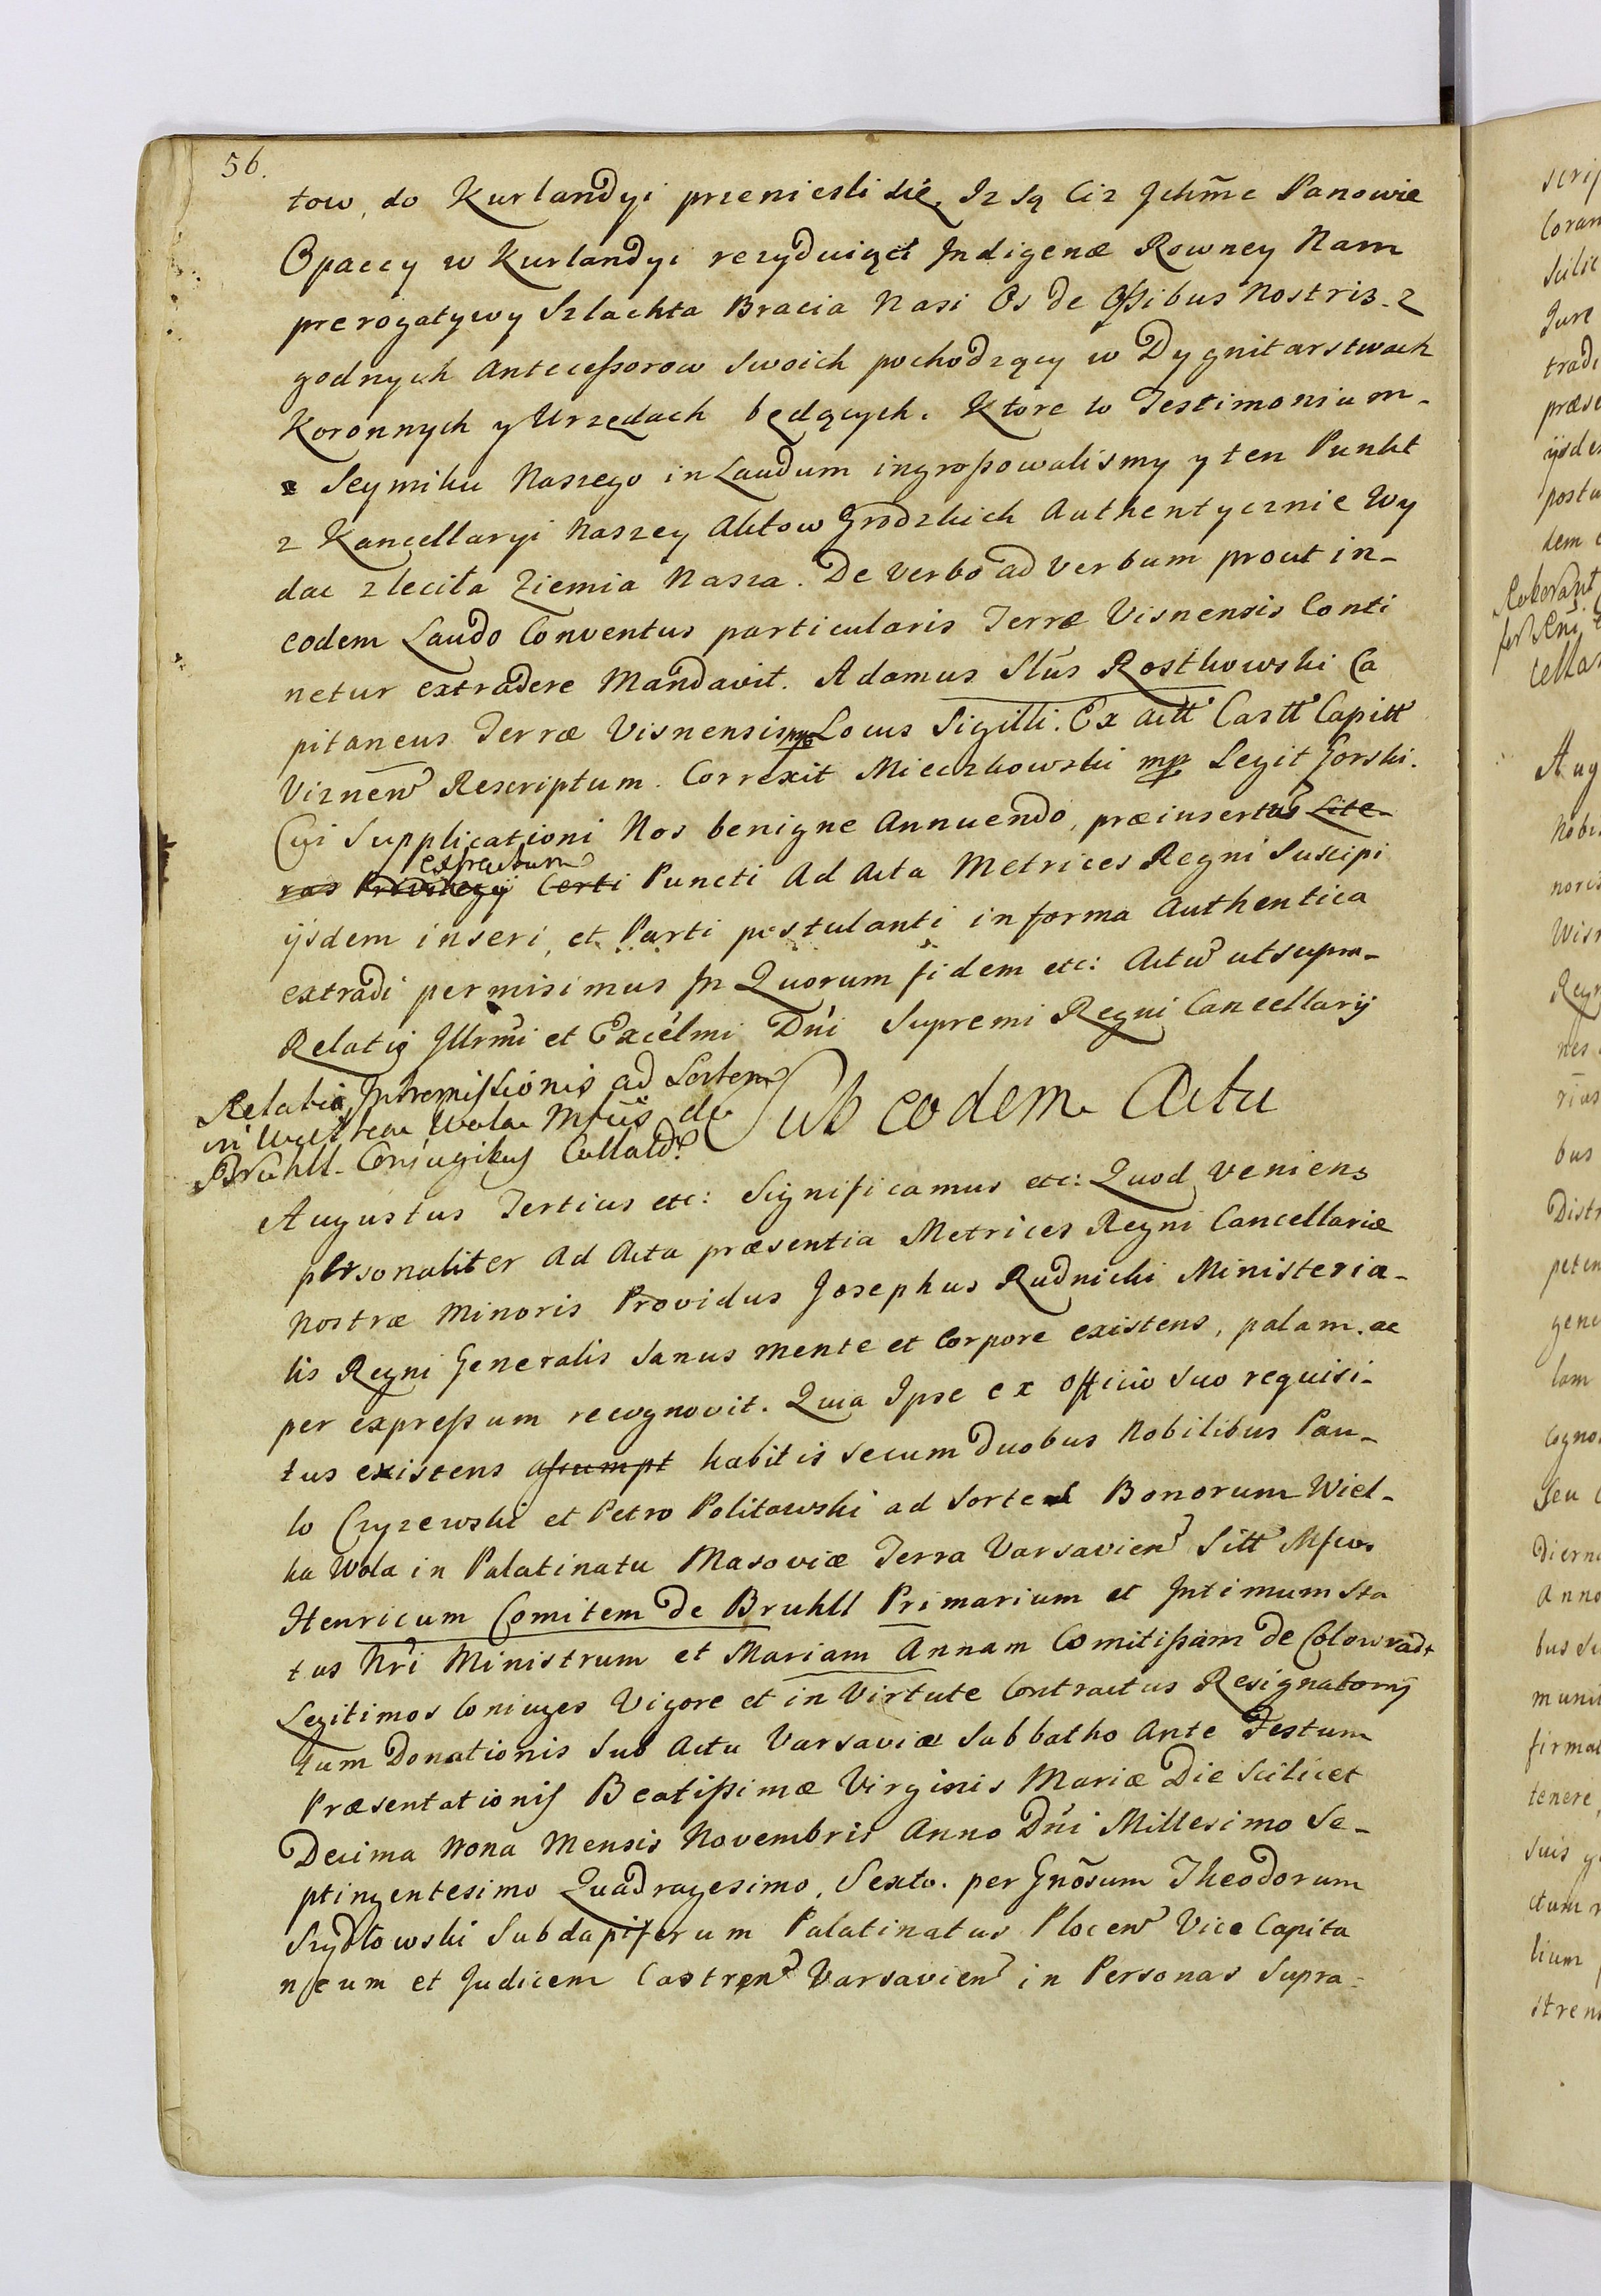 56.
tow, do Kurlandyi przeniesli się, Iz są Ciz Jchm̃c Panowie
Opaccy w Kurlandyi rezyduiąci Indigenæ Rowney Nam
prerogatywy Szlachta Bracia Nasi Os de Oßibus Nostris z
godnych Anteceßorow Swoich pochodzący w Dygnitarstwach
Koronnych y Urzędach będących. Ktore to Testimonium
Seymiku Naszego in Laudum ingroßowalismy y ten Punkt
z Kancellaryi Naszey Aktow Grodzkich Authentycznie Wy
dac zleciła Ziemia Nasza. De verbo ad verbum prout in-
eodem Laudo Conventus particularis Terræ Visnensis Conti
netur extradere Mandavit. Adamus Stus Rostkowski Ca
pitaneus Terræ Visnensis mp Locus Sigilli. Ex Actt Castt Capitt
Viznen Rescriptum. Correxit Mieczkowski mp Legit Gorski.
Cui Supplicationi Nos benigne Annuendo, præinsertus Lite-
ras Privilegij extractum Certi Puncti Ad Acta Metrices Regni Suscipi
ijsdem inseri, et Parti postulanti in forma Authentica
extradi permisimus In Quorum fidem etc: Actu ut supra-
Relatio Illrmi et Excelmi Dni Supremi Regni Cancellarij
Relatio Intromissionis ad Sortem
in Wielka Wola Mfcis de
Bruhll Conjugibus Collatd
Sub eodem Actu
Augustus Tertius etc: Significamus etc: Quod veniens
personaliter Ad Acta præsentia Metrices Regni Cancellariæ
Nostræ Minoris Providus Josephus Rudnicki Ministeria-
lis Regni Generalis Sanus mente et Corpore existens, palam ac
per expreßum recognovit. Quia Ipse ex Officio Suo requisi-
tus existens aßumpt habitis secum duobus Nobilibus Pau-
lo Czyzewski et Petro Politowski ad Sortem Bonorum Wiel-
ka Wola in Palatinatu Masoviæ Terra Varsavien Sitt Mfcos
Henricum Comitem de Bruhll Primarium et Intimum Sta
tus Nri Ministrum et Mariam Annam Comitißam de Colowradt
Legitimos Coniuges Vigore et in Virtute Contractus Resignatorij
tum Donationis Sub Actu Varsaviæ Sabbatho Ante Festum
Præsentationis Beatißimæ Virginis Mariæ Die Scilicet
Decima Nona Mensis Novembris Anno Dni Millesimo Se-
ptingentesimo Quadragesimo, Sexto. per Gnosum Theodorum
Szydłowski Subdapiferum Palatinatus Plocen Vice Capita
neum et Judicem Castren Varsavien in Personas Supra-